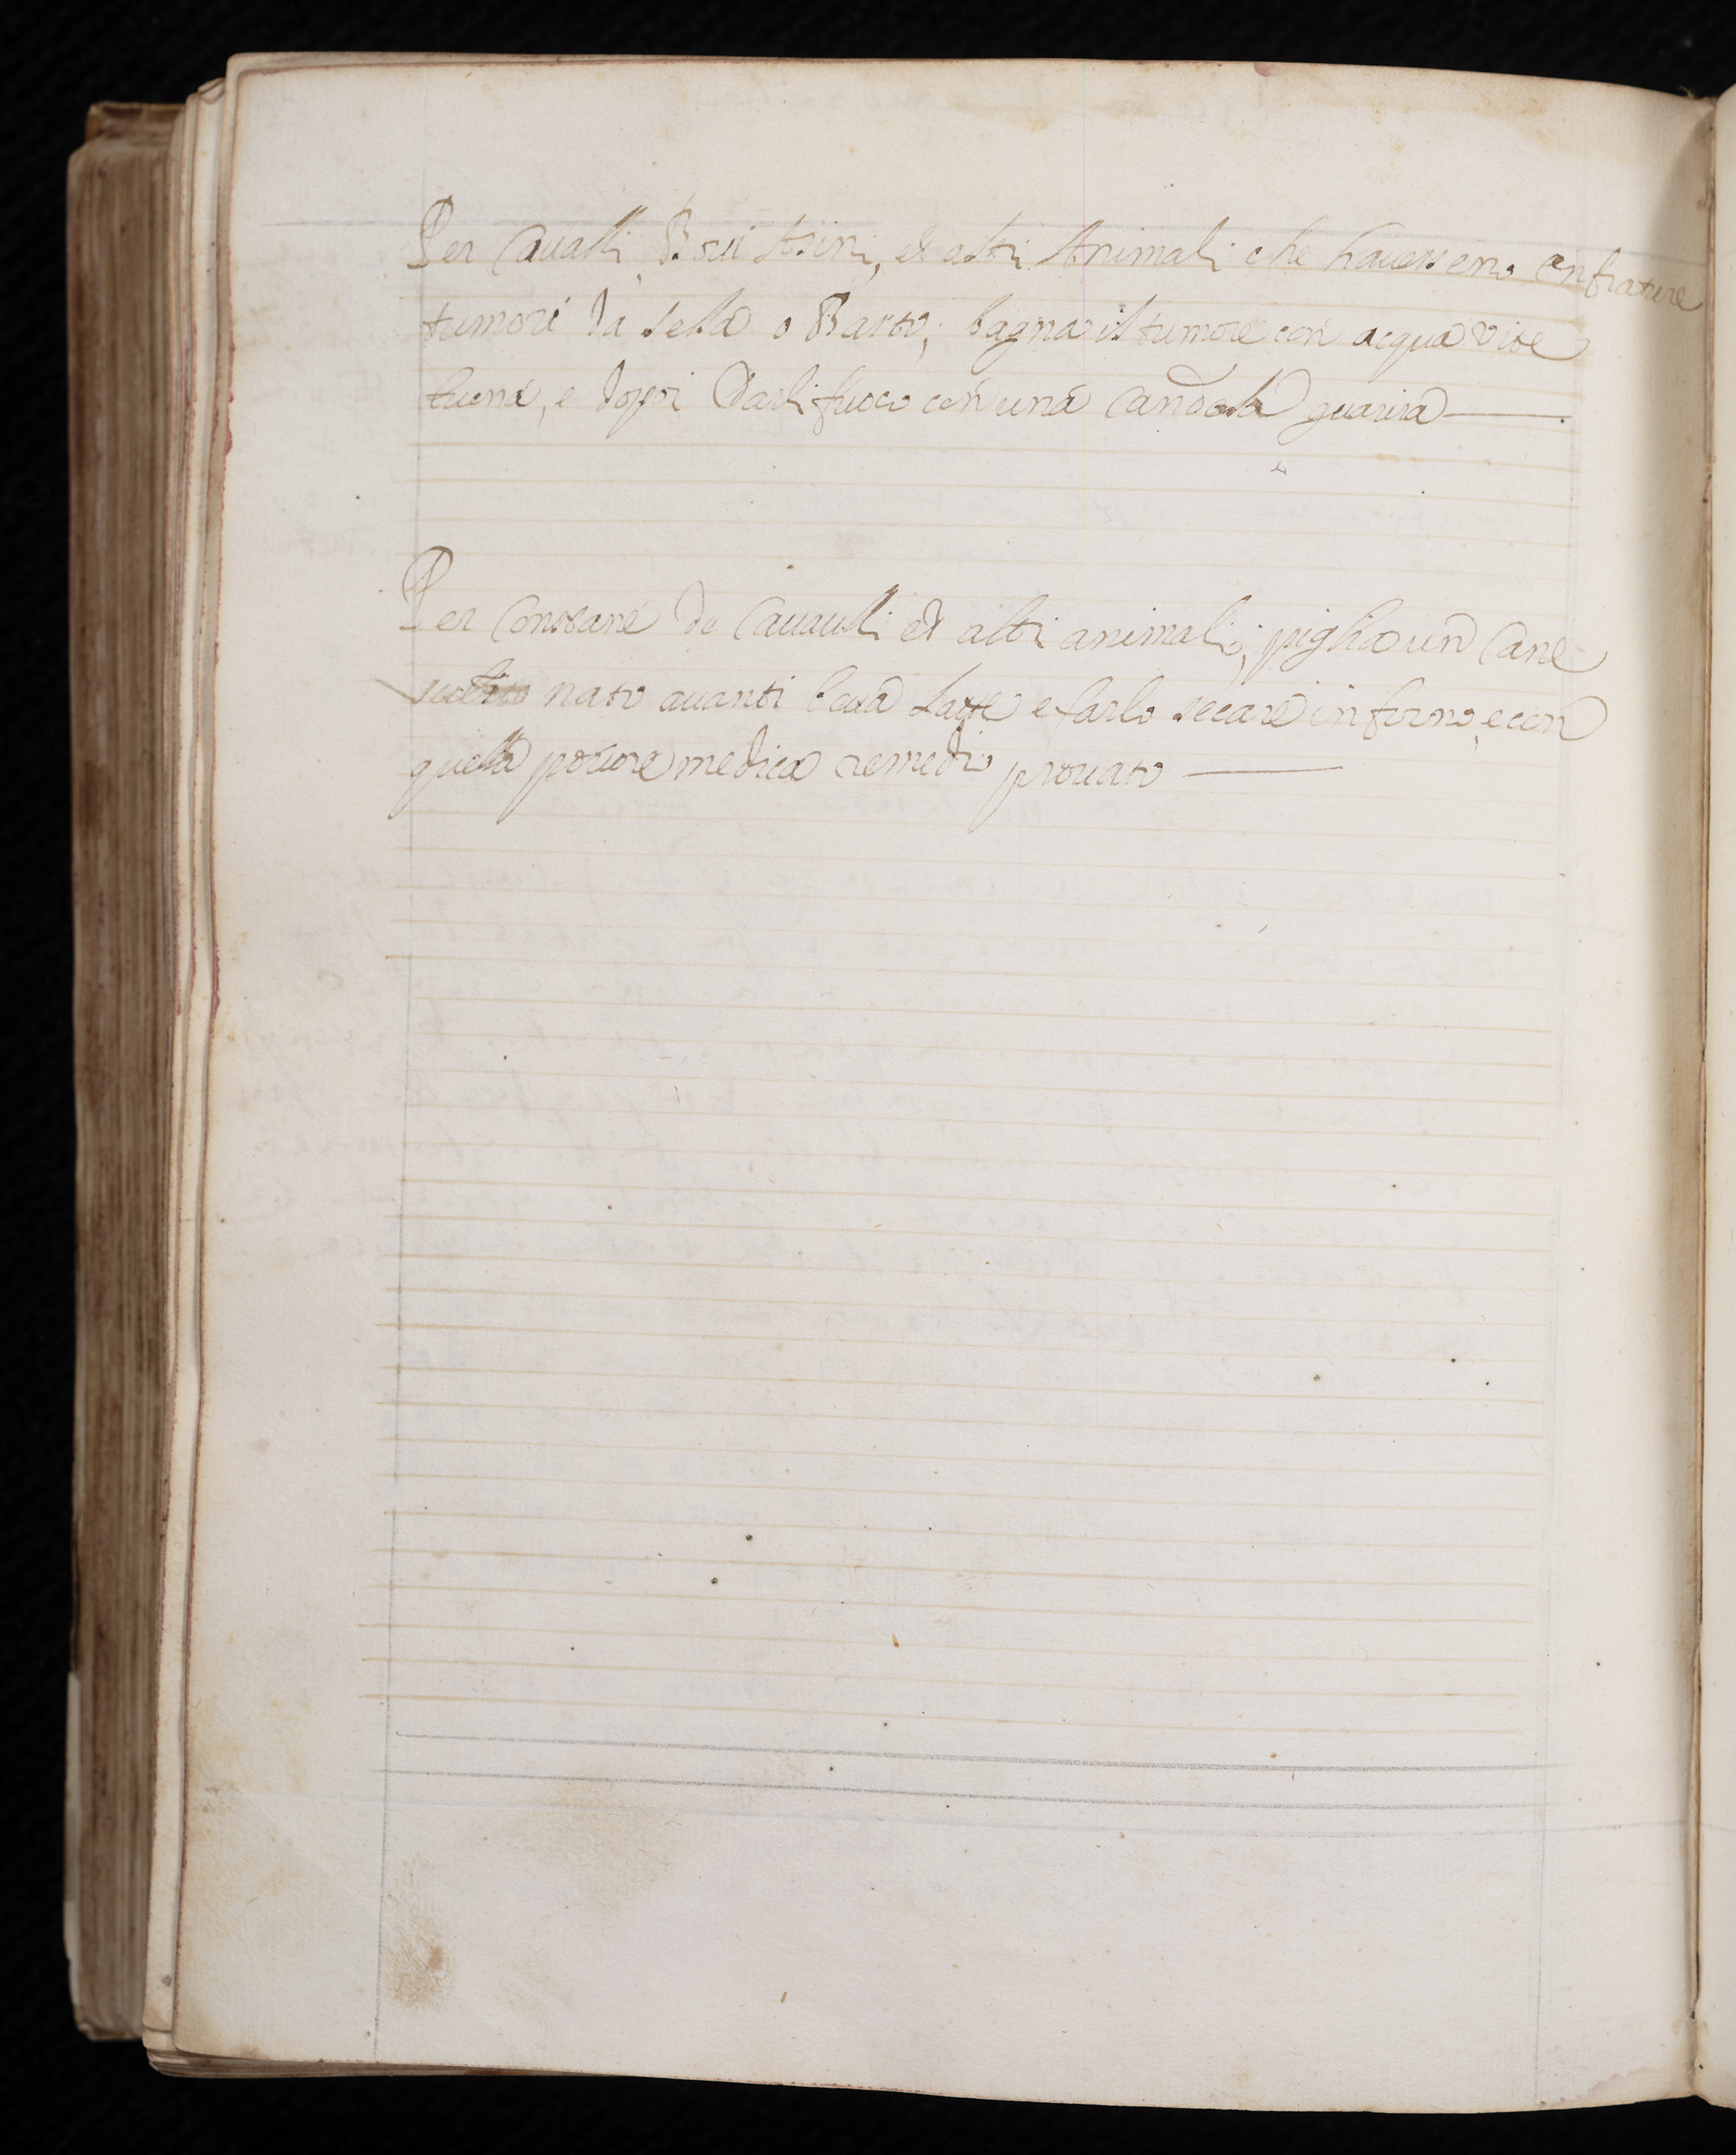 Per Cavalli Boui Asini, et altri Animali che havesseno enfiature
tumori da sella o Basto; bagna il tumore con acqua vite
buona, e doppi darli fuoco con una Candela guarira
Per de Cavalli et altri animali; piglia un Cane
nato avanti beva Latte e farlo secare in forno, e con
quella polvere medica remedio provato